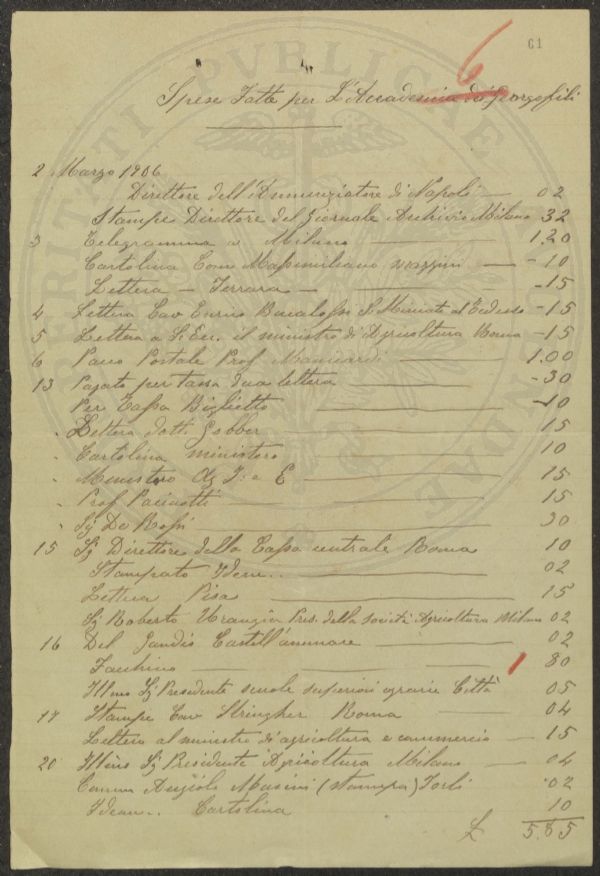 61
6
Spese Fatte per L'Accademia dei Georgofili
PERITIS PVBLICAE
2 Marzo 1906
Direttore dell'Annunziatore di Napoli — 02
Stampe Direttore del Giornale Archivio Milano 32
3 Telegramma a Milano — 1.20
Cartolina Com Massimiliano — -10
Lettera — Ferrara — -15
4 Lettera Cav Enrico Bucalossi S. Miniato al Tedesco -15
5 Lettera a S. Ecc. il ministro di Agricoltura Roma -15
6 Pacco Postale Prof — 1.00
13 Pagato per tassa dua lettera — -30
Per Tassa Biglietto — -10
Lettera dott. Gobber — 15
Cartolina ministero — 10
Ministero Ag I. e E — 15
Prof Pacinotti — 15
Sg De Rossi — 30
15 Sg Direttore della Cassa centrale Roma 10
Stampato Idem .. — 02
Lettera Pisa — 15
Sg Roberto Pres. della Società Agricoltura Milano 02
16 Del Gaudio Castell'ammare — 02
Facchino — 80
Illmo Sg Presidente scuole superiori agrarie Città 05
17 Stampe Cav Stringher Roma — 04
Lettera al ministro di agricoltura e commercio — 15
20 Illmo Sg Presidente Agricoltura Milano — 04
Comm Angiolo Masini (stampa) Forlì 02
Idem .. Cartolina 10
£ 5.85